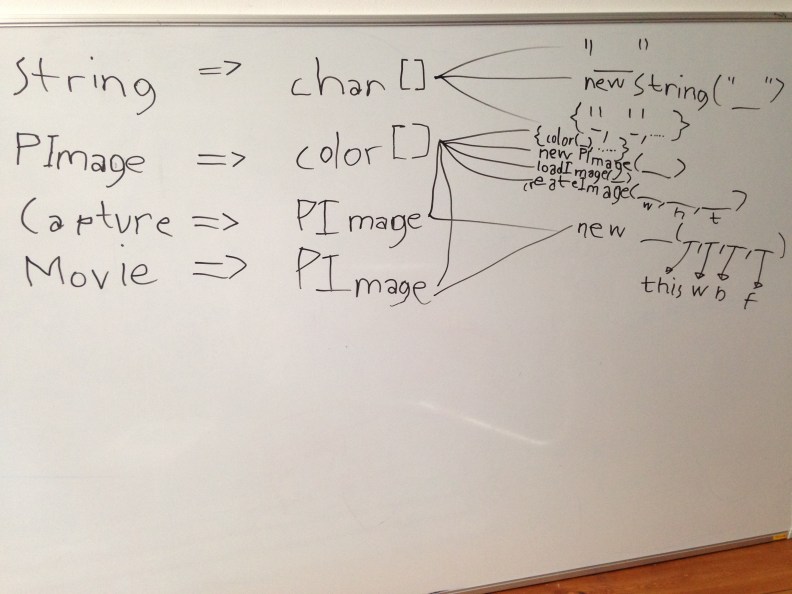 String => char [] " __ "
new String("__")
{ " " " "
-, -, .... }
PImage => color [] {color(_) .....}
new PImage(__)
loadImage(_)
createImage(__,__,__)
w h t
Capture => PImage
new __(_,_,_,_)
Movie => PImage
this w h f